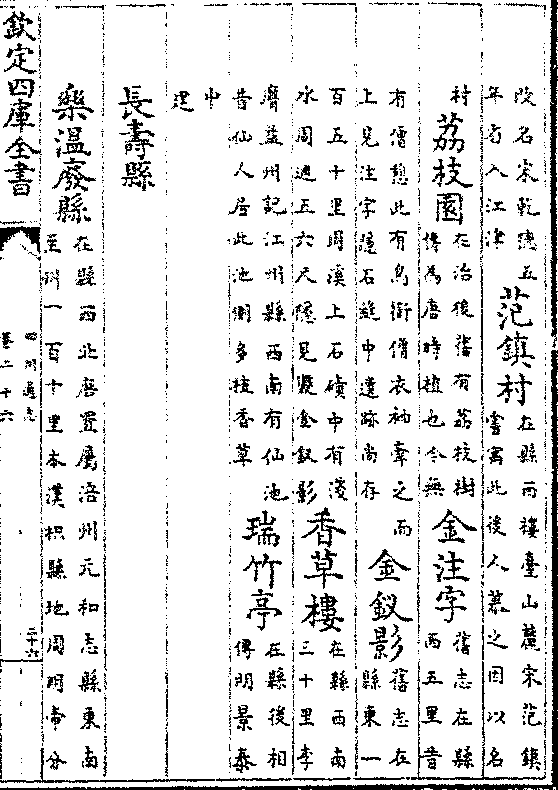 改名宋乾德五
年省入江津
范鎮村
在縣西樓臺山麓宋范鎮
嘗寓此後人慕之因以名
村
荔枝園
在治後舊有荔枝樹
傳為唐時植也今無
金注字
舊志在縣
西五里昔
有僧憩此有鳥銜僧衣袖牽之而
上見注字隱石縫中遺跡尚存
金釵影
舊志在
縣東一
百五十里周溪上石磧中有淺
水周迴五六尺隱見雙金釵影
香草樓
在縣西南
三十里李
膺益州記江州縣西南有仙池
昔仙人居此池側多植香草
瑞竹亭
在縣後相
傳明景泰
中
建
長壽縣
樂溫廢縣
在縣西北唐置屬涪州元和志縣東南
至州一百十里本漢枳縣地周明帝分
欽定四庫全書
四川通志
卷二十六
二十六